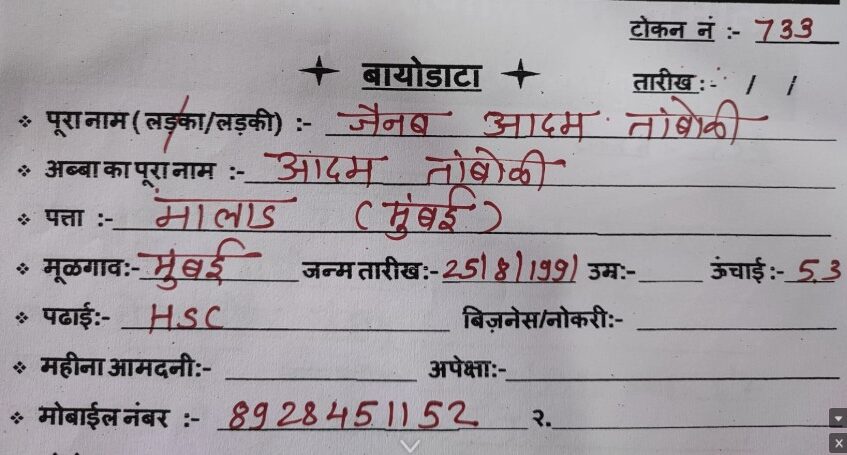 टोकन नं :- 733
बायोडाटा
तारीख :- / /
पूरा नाम (लड़का/लड़की) :- जैनब आदम तांबोळी
अब्बा का पूरा नाम :- आदम तांबोळी
पत्ता :- मालाड (मुंबई)
मूळगाव:- मुंबई जन्म तारीख:- 25/8/1991 उम्र:- ऊंचाई :- 5.3
पढाई:- HSC बिज़नेस/नोकरी:-
महीना आमदनी:- अपेक्षा:-
मोबाईल नंबर :- 8928451152 २.